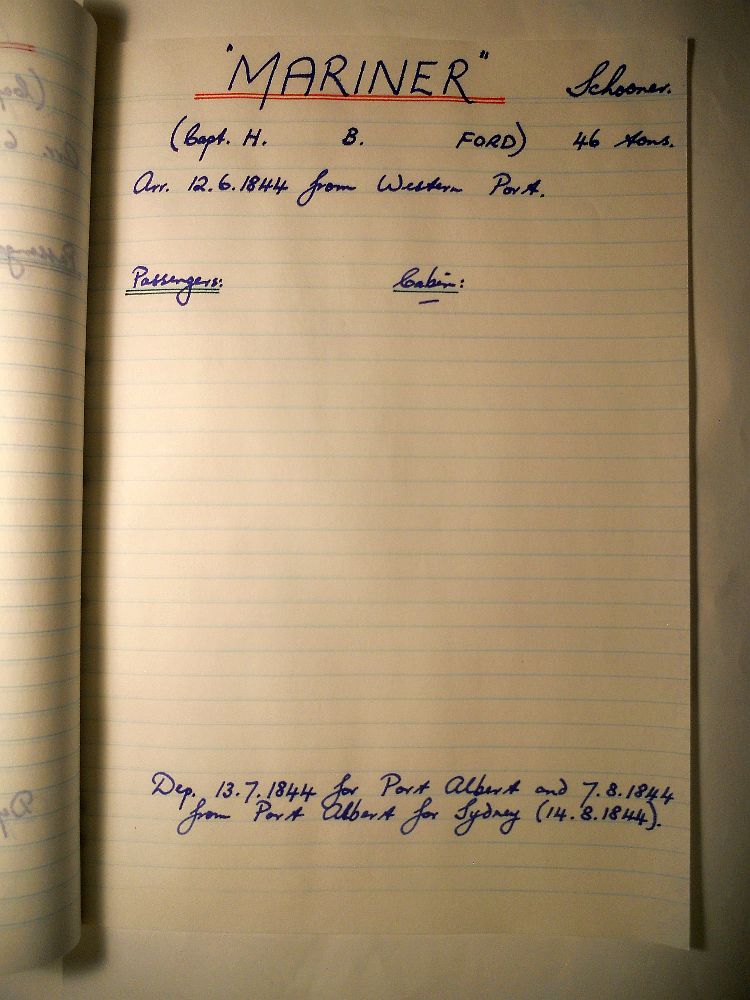 "MARINER" Schooner.
(Capt. H. B. FORD) 46 tons.
Arr. 12.6.1844 from Western Port.
Passengers: Cabin:
Dep. 13.7.1844 for Port Albert and 7.8.1844
from Port Albert for Sydney (14.8.1844).